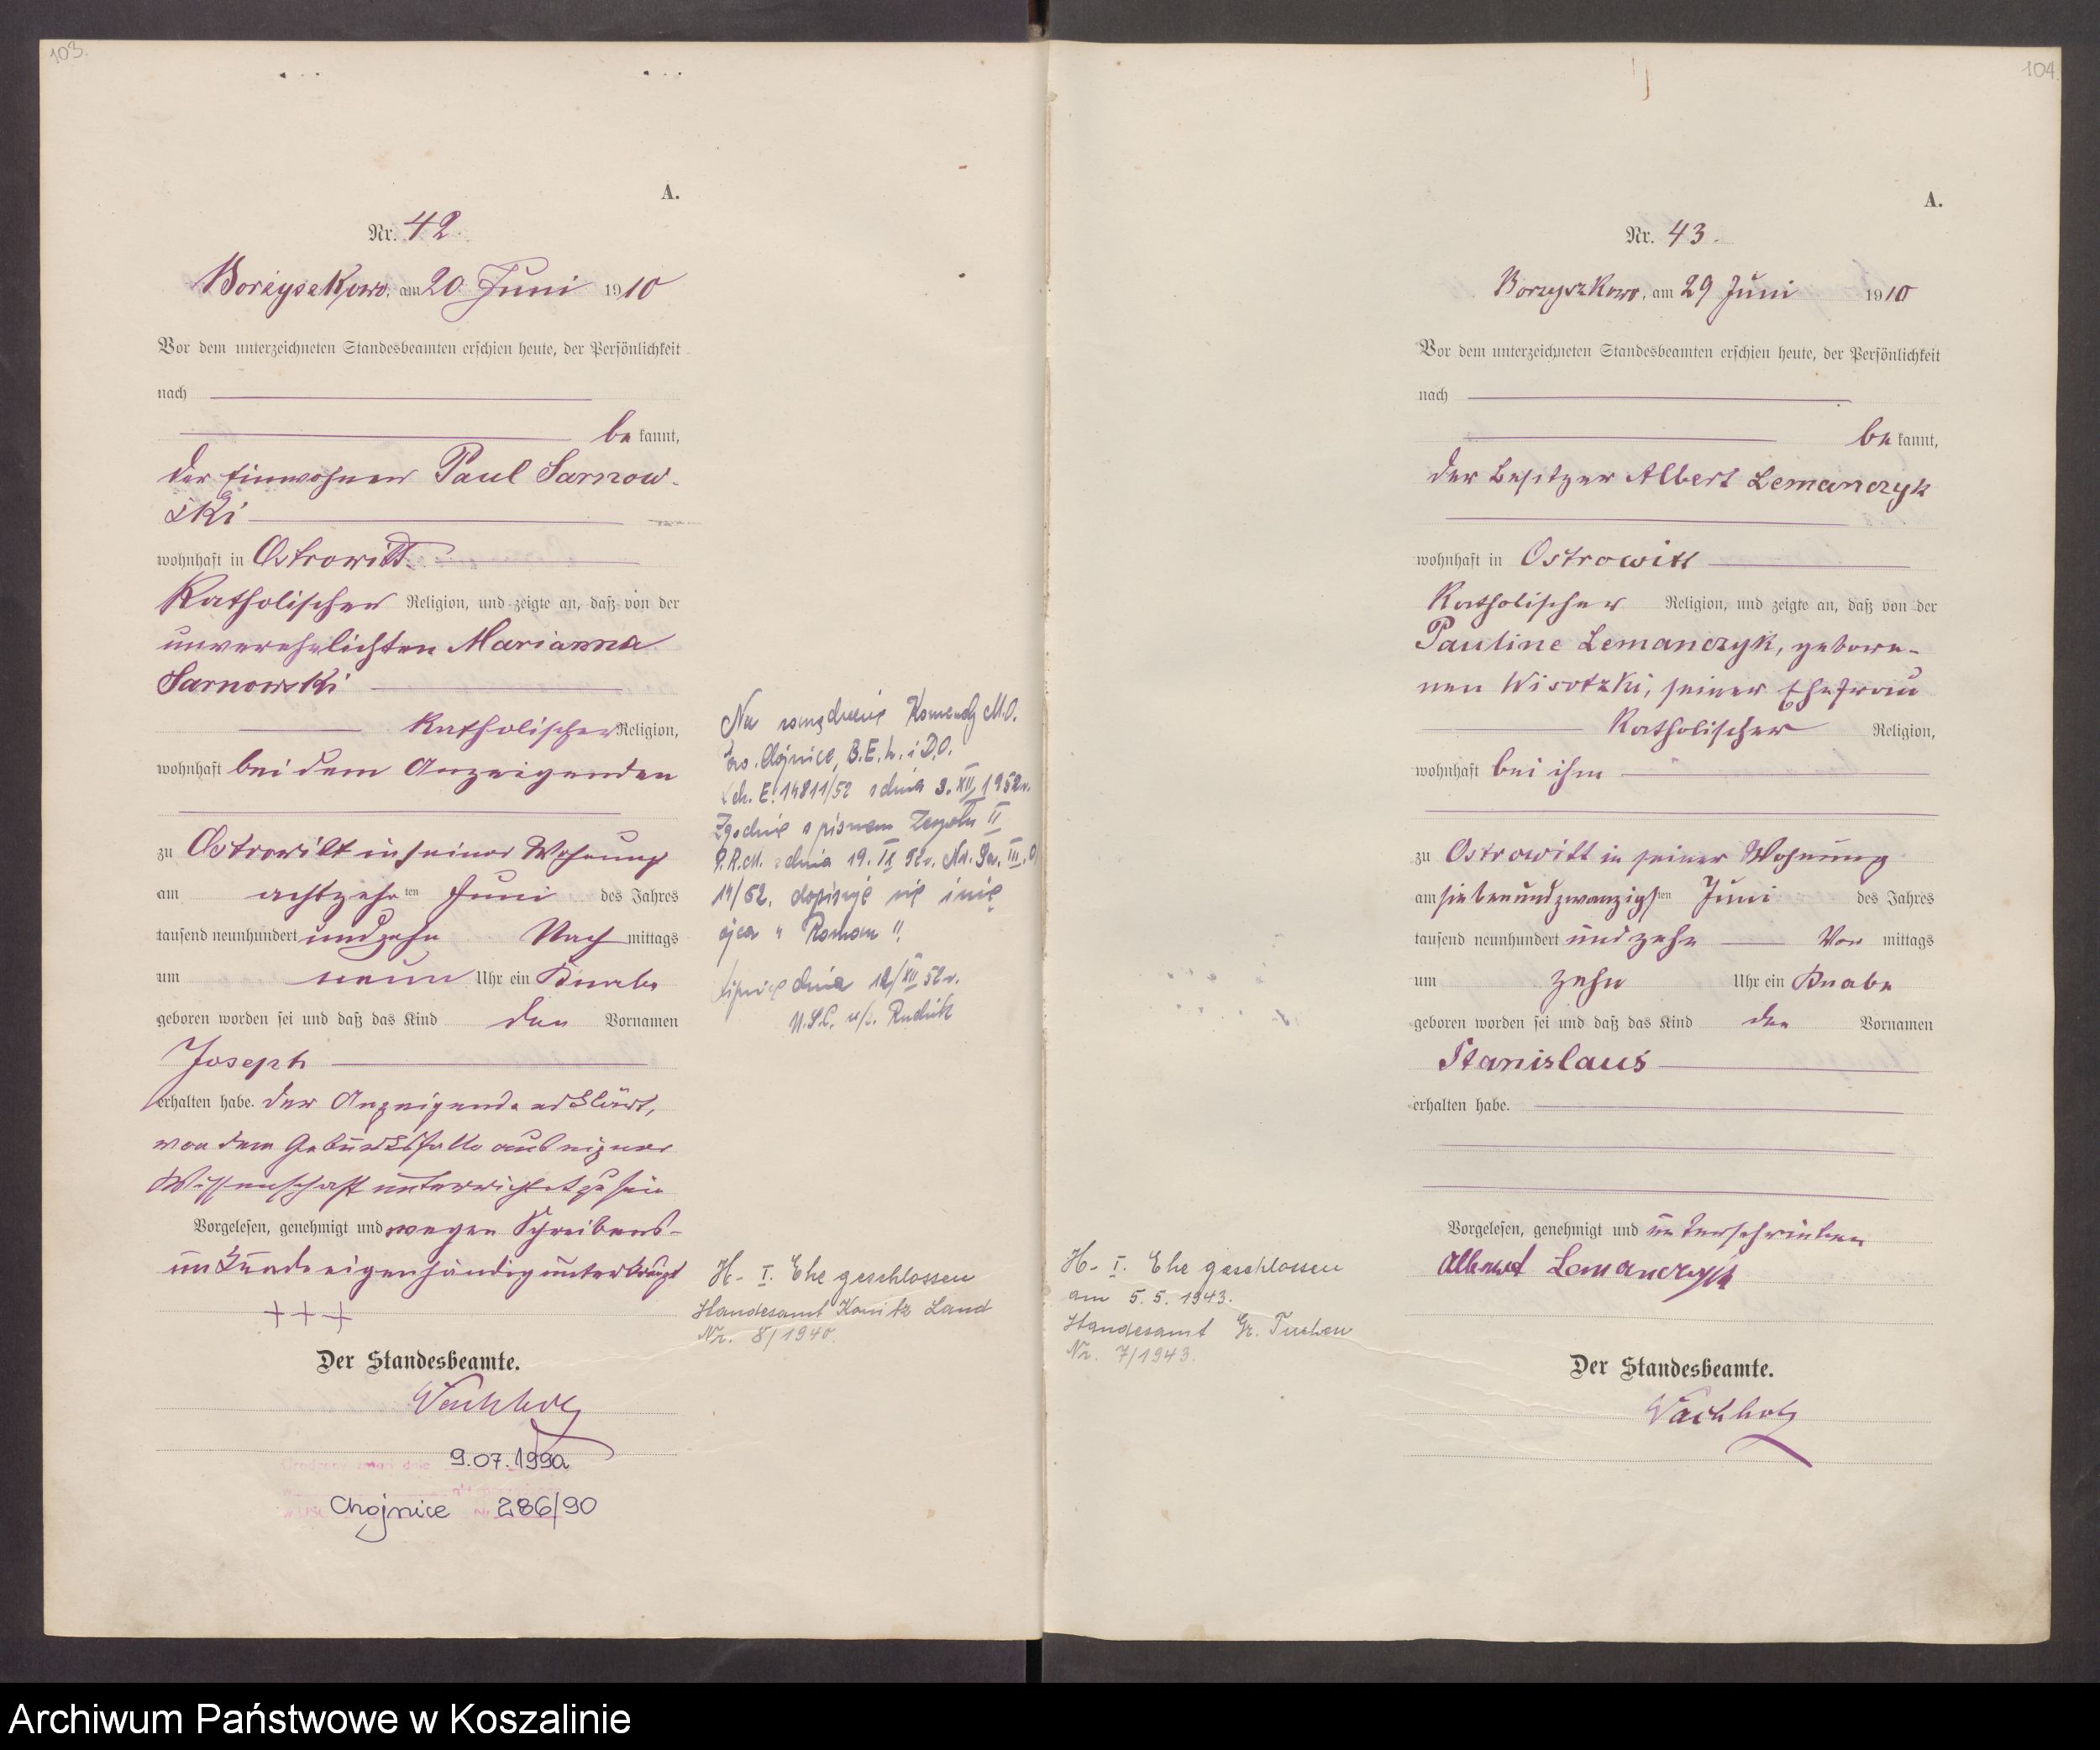 103.
A.
Nr. 42.
Borzyszkowo, am 20 Juni 1910
Vor dem unterzeichneten Standesbeamten erschien heute, der Persönlichkeit
nach
be kannt,
der Einwohner Paul Sarnow-
ski
wohnhaft in Ostrowitt
Katholischer Religion, und zeigte an, daß von der
unverehelichten Marianna
Sarnowski
Katholischer Religion,
wohnhaft bei dem Anzeigenden
zu Ostrowitt in seiner Wohnung
am achtzehn ten Juni des Jahres
tausend neunhundert und zehn Nach mittags
um neun Uhr ein Knabe
geboren worden sei und daß das Kind den Vornamen
Joseph
erhalten habe. Der Anzeigende erklärt,
von dem Geburtsfalle aus eigener
Wissenschaft unterrichtet zu sein
Vorgelesen, genehmigt und wegen Schreibens-
unkunde eigenhändig unterkreuzt
+++
Der Standesbeamte.
Wachholz
9.07.1990
Chojnice 286/90
Komendy M.O.
Pow. Chojnice, B.E.L. i D.O.
E. 14811/52 z dnia 3. XII. 1952r.
Zgodnie z pismem Zespołu II
P.R.M. z dnia 19. 52r. Nr. III.
14/52. dopisuje się imię
ojca "Roman".
Lipnica dnia 12/XII 52r.
U.S.C. Rudnik
H. I. Ehe geschlossen
Standesamt Konitz Land
Nr. 8/1940.
104.
A.
Nr. 43.
Borzyszkowo, am 29 Juni 1910
Vor dem unterzeichneten Standesbeamten erschien heute, der Persönlichkeit
nach
be kannt,
der Besitzer Albert Lemanczyk
wohnhaft in Ostrowitt
Katholischer Religion, und zeigte an, daß von der
Pauline Lemanczyk, gebore-
nen Wisotzki, seiner Ehefrau
Katholischer Religion,
wohnhaft bei ihm
zu Ostrowitt in seiner Wohnung
am siebenundzwanzigsten Juni des Jahres
tausend neunhundert und zehn Vor mittags
um zehn Uhr ein Knabe
geboren worden sei und daß das Kind den Vornamen
Stanislaus
erhalten habe.
Vorgelesen, genehmigt und unterschrieben
Albert Lemanczyk
Der Standesbeamte.
Wachholz
H. I. Ehe geschlossen
am 5. 5. 1943.
Standesamt Gr. Tuchen
Nr. 7/1943.
Archiwum Państwowe w Koszalinie